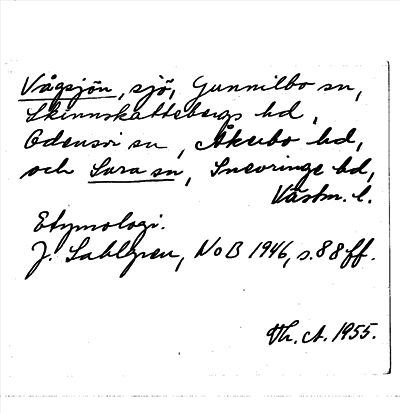 Vågsjön, sjö, Gunnilbo sn,
Skinnskattebergs hd,
Odensvi sn, Åkerbo hd,
och Sura sn, Snevringe hd,
Västm. l.
Etymologi.
J. Sahlgren, NoB 1946, s. 88 ff.
Th. ct. 1955.